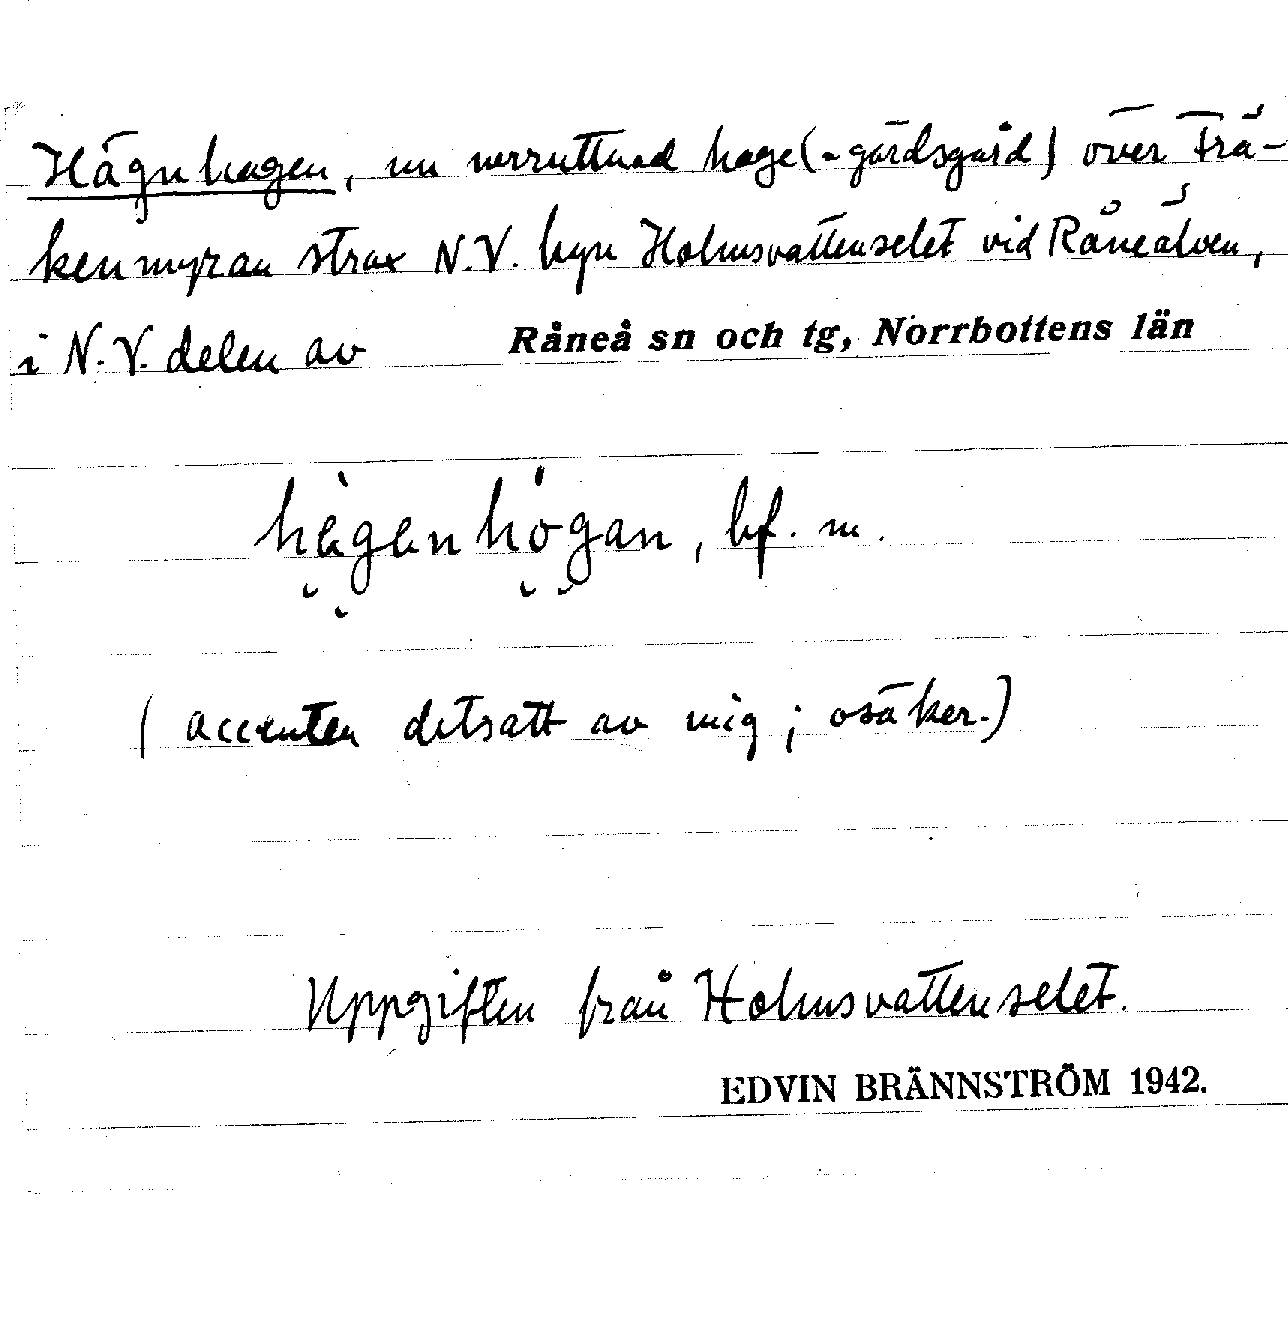 Hägnhagen, nu nerruttnad hage (= gärdsgård) över Frä-
kenmyran strax N.V. byn Holmsvattenselet vid Råneälven,
i N.V. delen av Råneå sn och tg, Norrbottens län
hègenhógan, bf. m.
(accenten ditsatt av mig; osäker.)
Uppgiften från Holmsvattenselet.
EDVIN BRÄNNSTRÖM 1942.